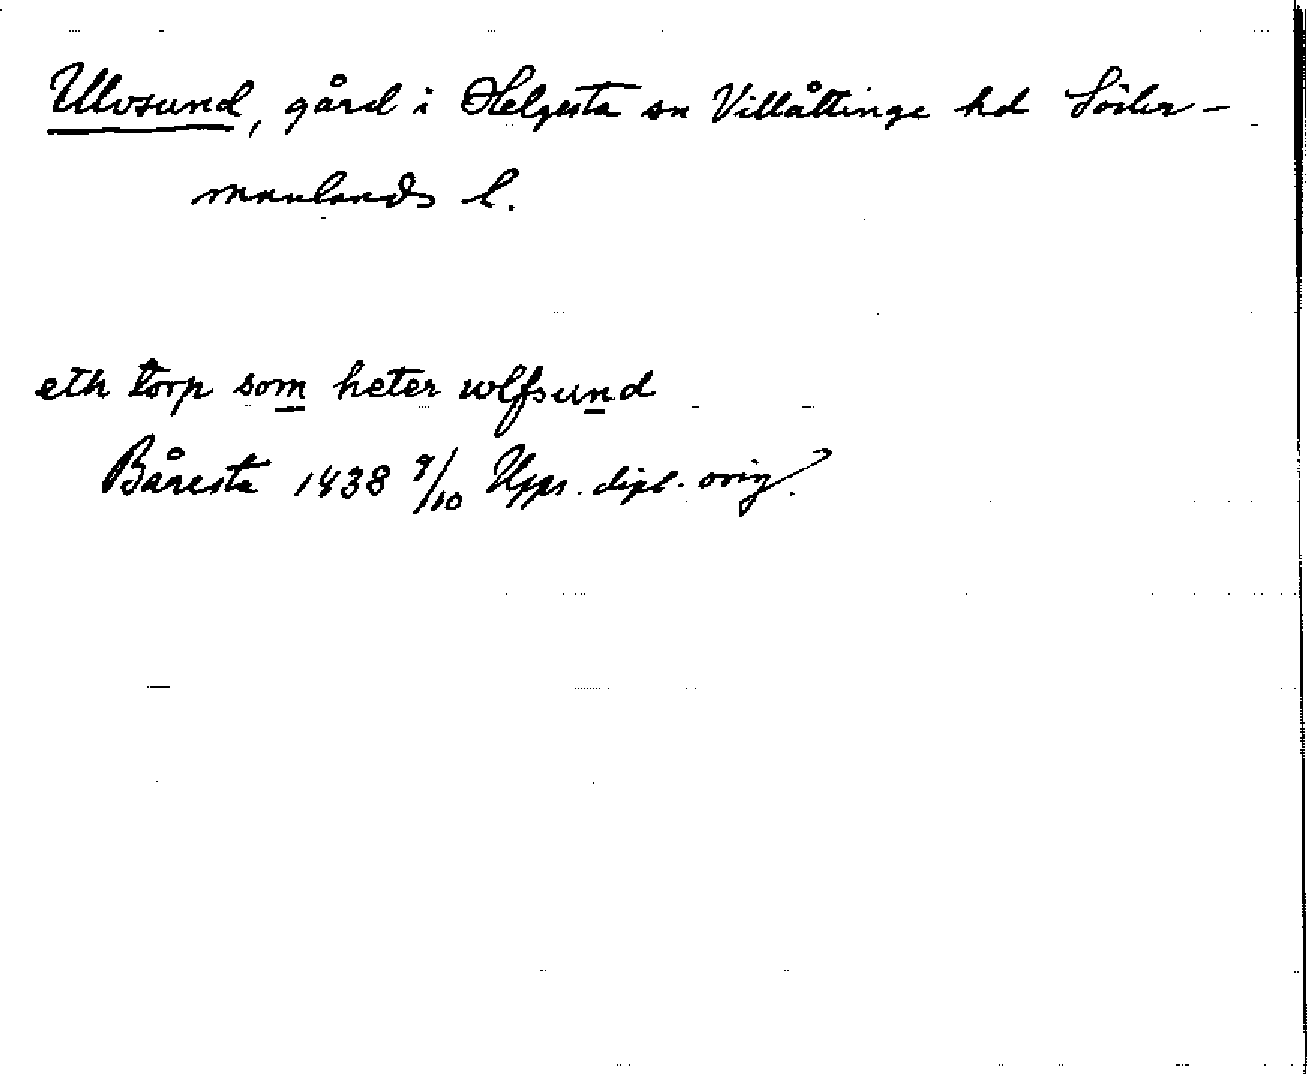 Ulvsund, gård i Helgesta sn Villåttinge hd Söder-
manlands l.
eth torp som heter wlfsund
Båresta 1438 9/10 Upps. dipl. orig.